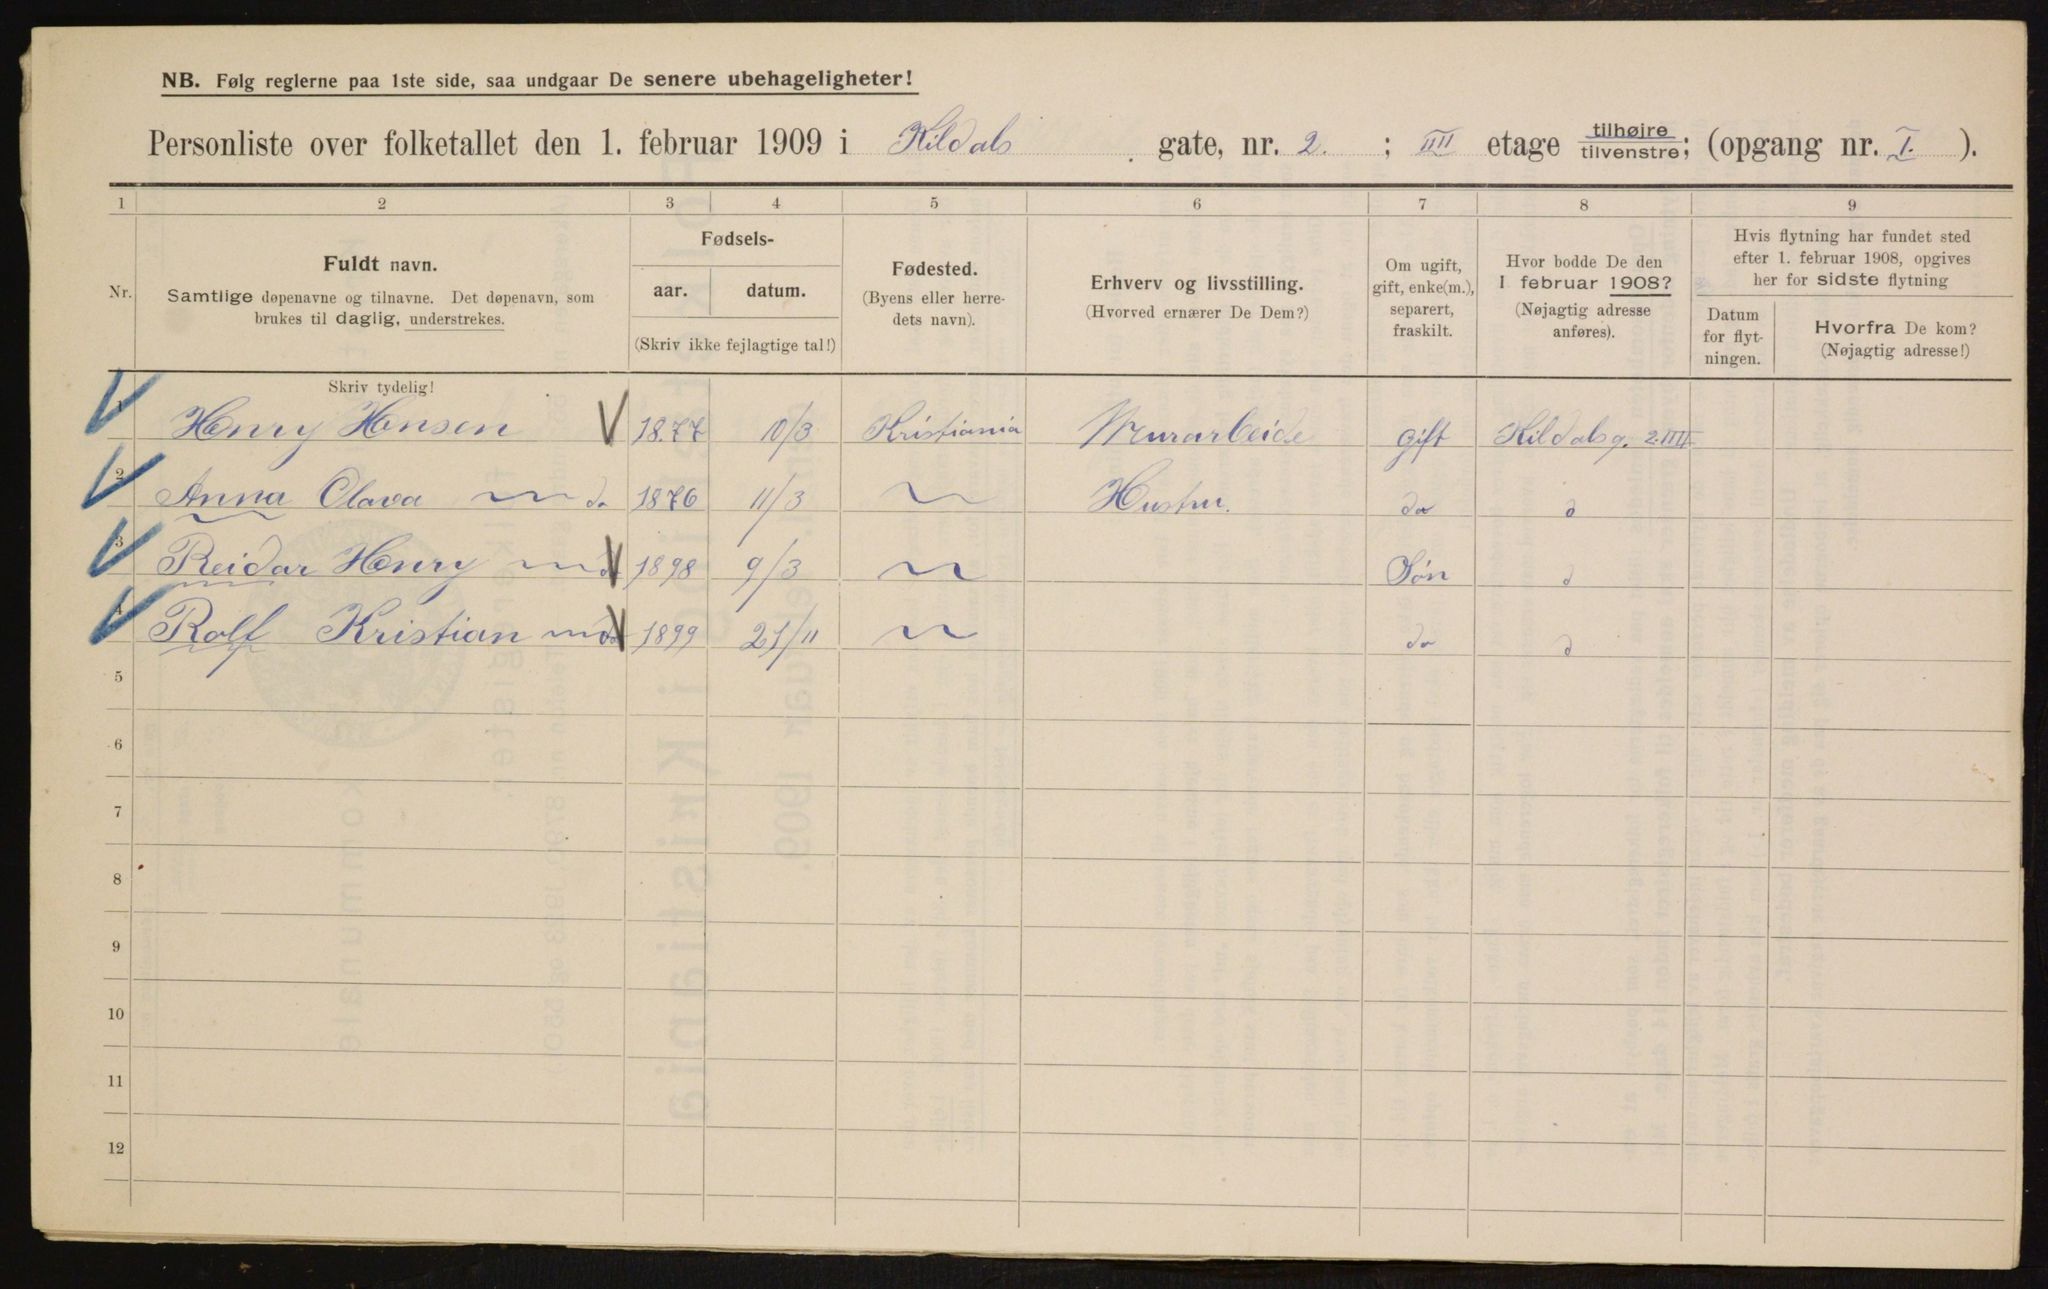 NB. Følg reglerne paa 1ste side, saa undgaar De senere ubehageligheter!
Personliste over folketallet den 1. februar 1909 i Kildals gate, nr. 2. ; IIII etage tilhøjre tilvenstre; (opgang nr. I. ).
1 2 3 4 5 6 7 8 9
Nr.
Fuldt navn.
Samtlige døpenavne og tilnavne. Det døpenavn, som
brukes til daglig, understrekes.
Fødsels-
aar. datum.
(Skriv ikke fejlagtige tal!)
Fødested.
(Byens eller herre-
dets navn).
Erhverv og livsstilling.
(Hvorved ernærer De Dem?)
Om ugift,
gift, enke(m.),
separert,
fraskilt.
Hvor bodde De den
1 februar 1908?
(Nøjagtig adresse
anføres).
Hvis flytning har fundet sted
efter 1. februar 1908, opgives
her for sidste flytning
Datum
for flyt-
ningen.
Hvorfra De kom?
(Nøjagtig adresse!)
Skriv tydelig!
1 Henry Hansen 18.77 10/3 Kristiania Murarbeide gift Kildalsg. 2 IIII
2 Anna Olava do 1876 11/3 Hustru. do d
3 Reidar Henry do 1898 9/3 Søn d
4 Rolf Kristian do 1899 21/11 do d
5
6
7
8
9
10
11
12